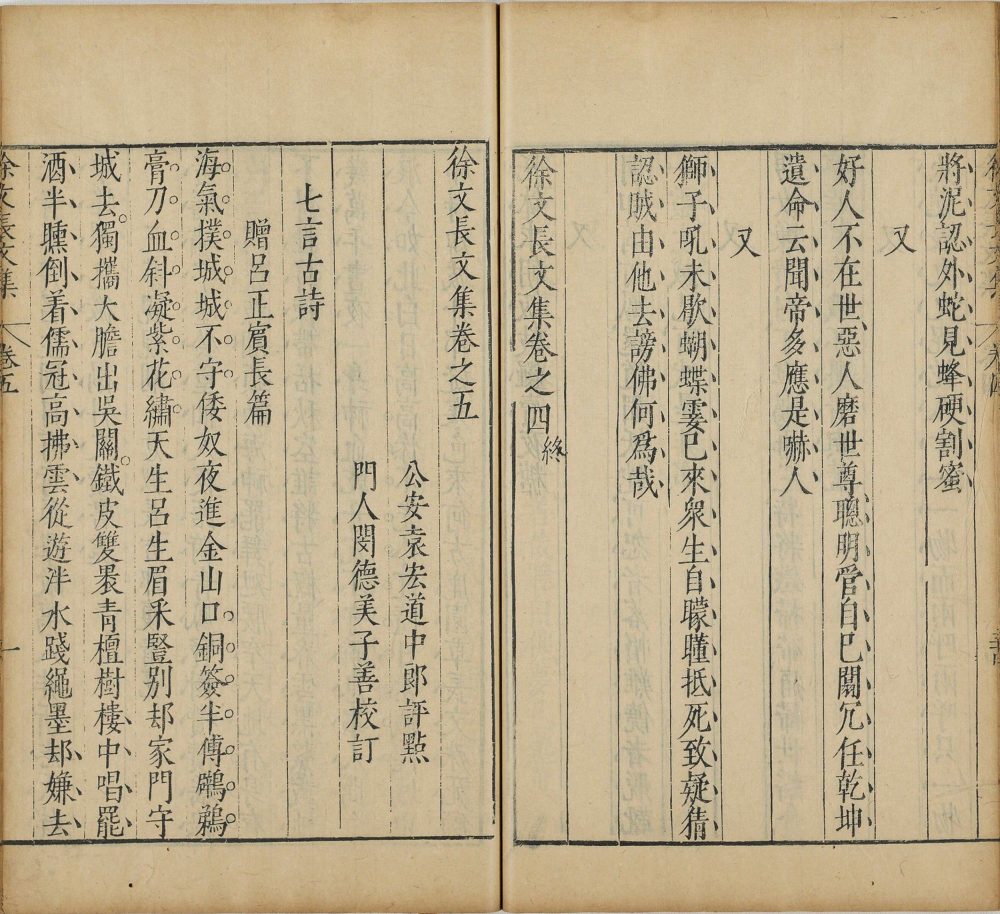 將泥認外蛇見蜂硬割蜜
又
好人不在世惡人磨世尊聰明管自己關冗任乾坤
遺命云聞帝多應是嚇人
又
獅子吼未歇蝴蝶霎已來衆生自矇瞳抵死致疑猜
認賊由他去謗佛何爲哉
徐文長文集卷之四終
徐文長文集卷之五
公安袁宏道中郎評點
門人閔德美子善校訂
七言古詩
贈呂正賓長篇
海氣撲城城不守倭奴夜進金山口銅簽半傅鸊鵜
膏刀血斜凝紫花繡天生呂生眉采豎別却家門守
城去獨攜大膽出吳關鐵皮雙裹青檀樹樓中唱罷
酒半醺倒着儒冠高拂雲從遊泮水踐繩墨却嫌去
徐文長文集 卷五 一